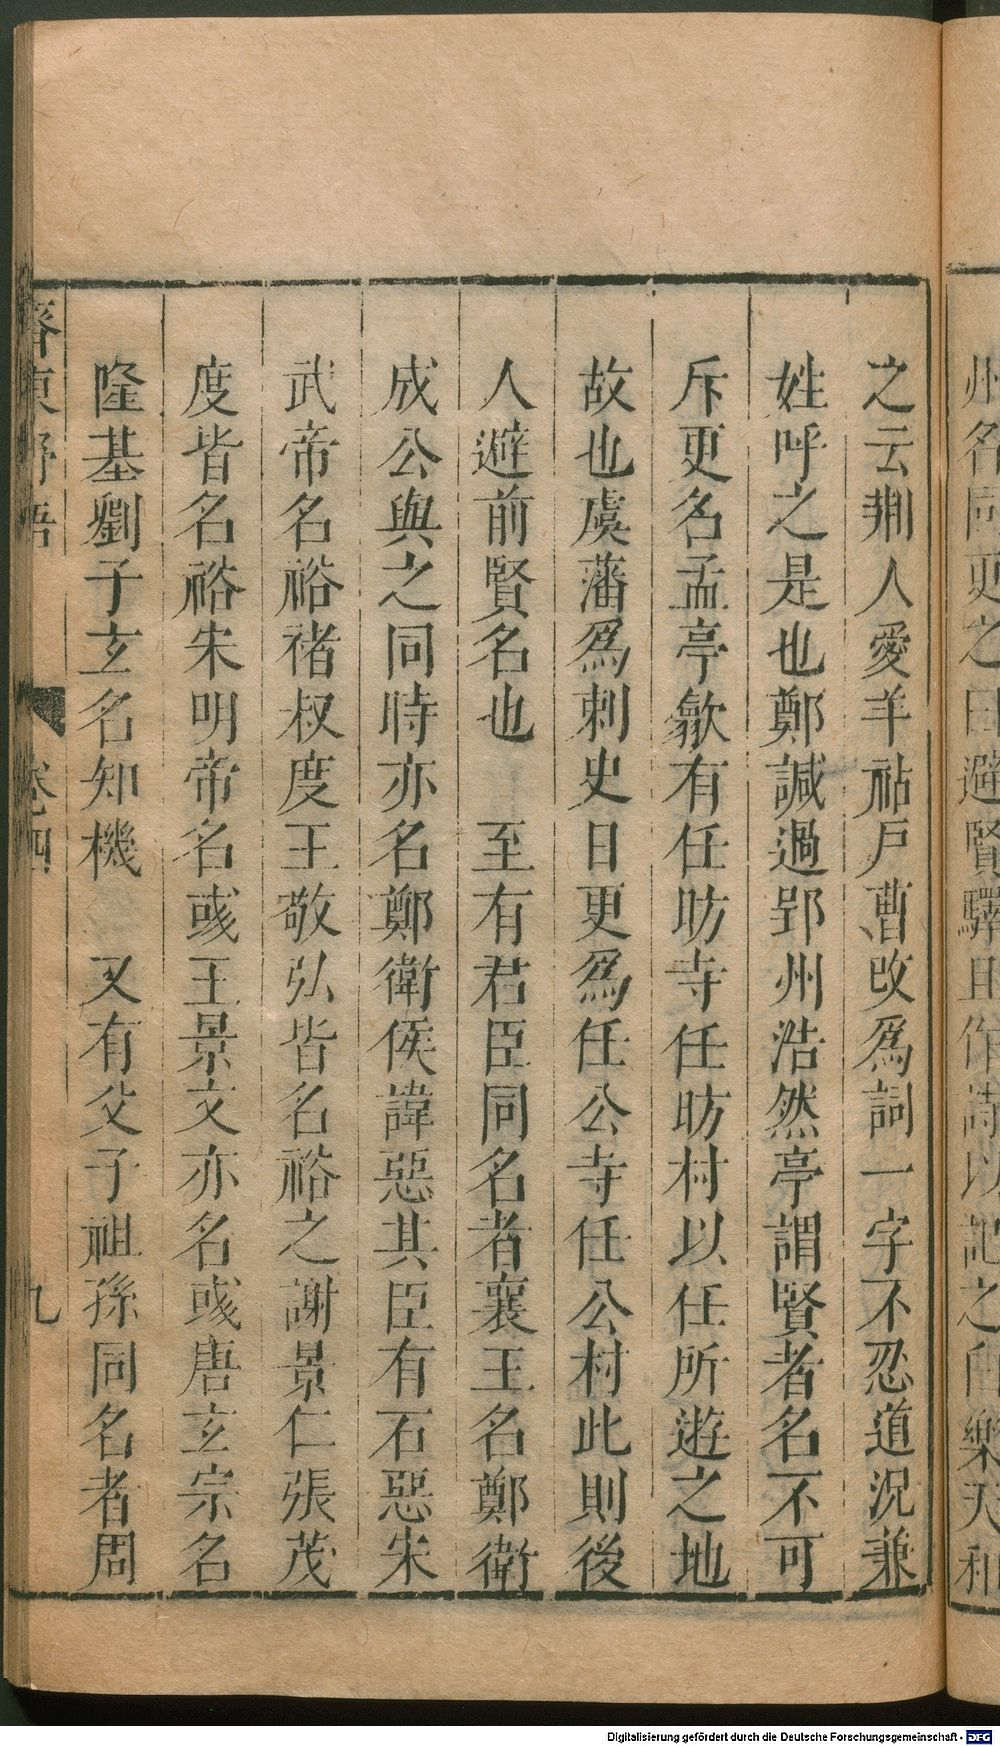 州名同更之曰避賢驛且作詩以記之白樂天和
之云荆人愛羊祜戸曹改爲詞一字不忍道況兼
姓呼之是也鄭諴過郢州浩然亭謂賢者名不可
斥更名孟亭歙有任昉寺任昉村以任所遊之地
故也虞藩爲刺史日更爲任公寺任公村此則後
人避前賢名也　至有君臣同名者襄王名鄭衛
成公與之同時亦名鄭衛侯諱惡其臣有石惡宋
武帝名裕禇叔度王敬弘皆名裕之謝景仁張茂
度皆名裕宋明帝名彧王景文亦名彧唐玄宗名
隆基劉子玄名知機　又有父子祖孫同名者周
齊東野語　卷四　九
Digitalisierung gefördert durch die Deutsche Forschungsgemeinschaft - DFG